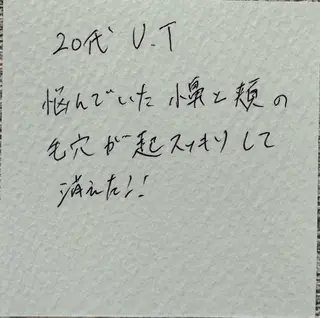 20代 U.T
悩んでいた小鼻と頬の
毛穴が超スッキリして
消えた!!